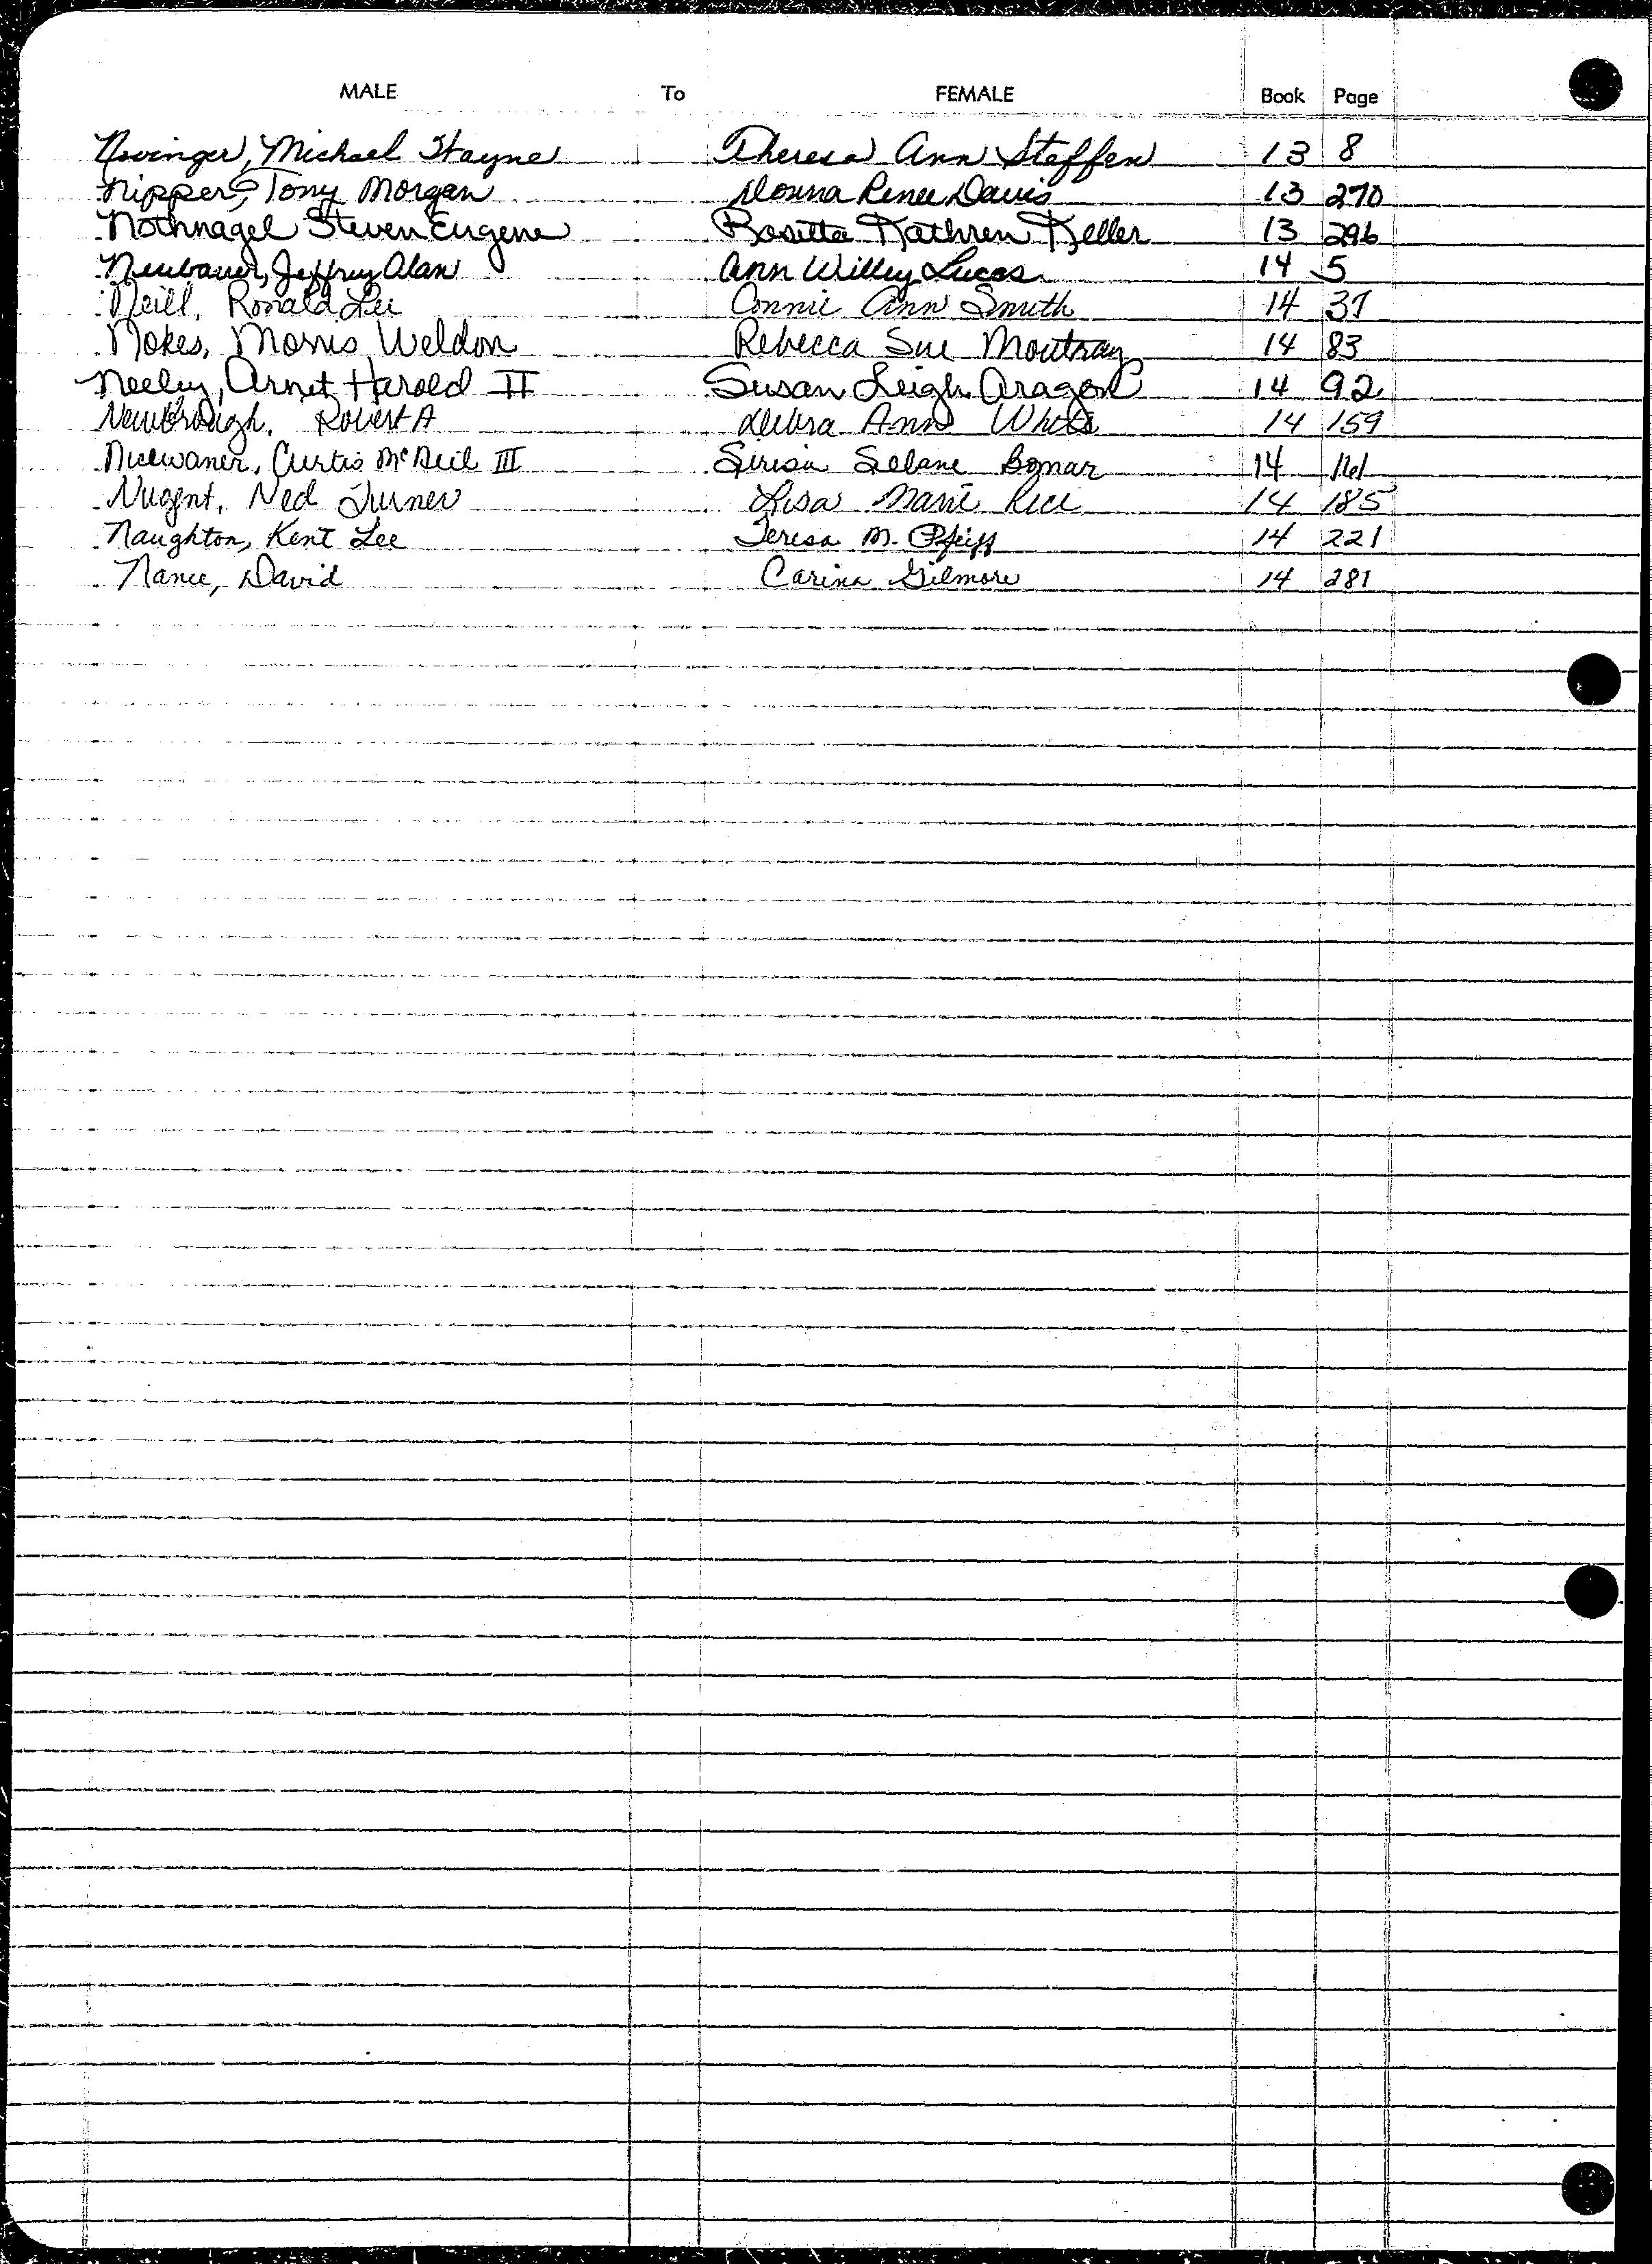 MALE To FEMALE Book Page
Novinger, Michael Wayne Theresa Ann Steffen 13 8
Nipper, Tony Morgan Donna Renee Davis 13 270
Nothnagel Steven Eugene Rosetta Kathren Keller 13 296
Neubauer, Jeffrey Alan Ann Willey Lucas 14 5
Neill, Ronald Lee Connie Ann Smith 14 37
Nokes, Morris Weldon Rebecca Sue Moutray 14 83
Neeley, Arnet Harold II Susan Leigh Aragon 14 92
Newbrough, Robert A Debra Ann White 14 159
Nicewaner, Curtis McNeil III Bomar 14 161
Nugent, Ned Turner Lisa Marie Rice 14 185
Naughton, Kent Lee Teresa M. Pfeiff 14 221
Nance, David Carina Gilmore 14 281